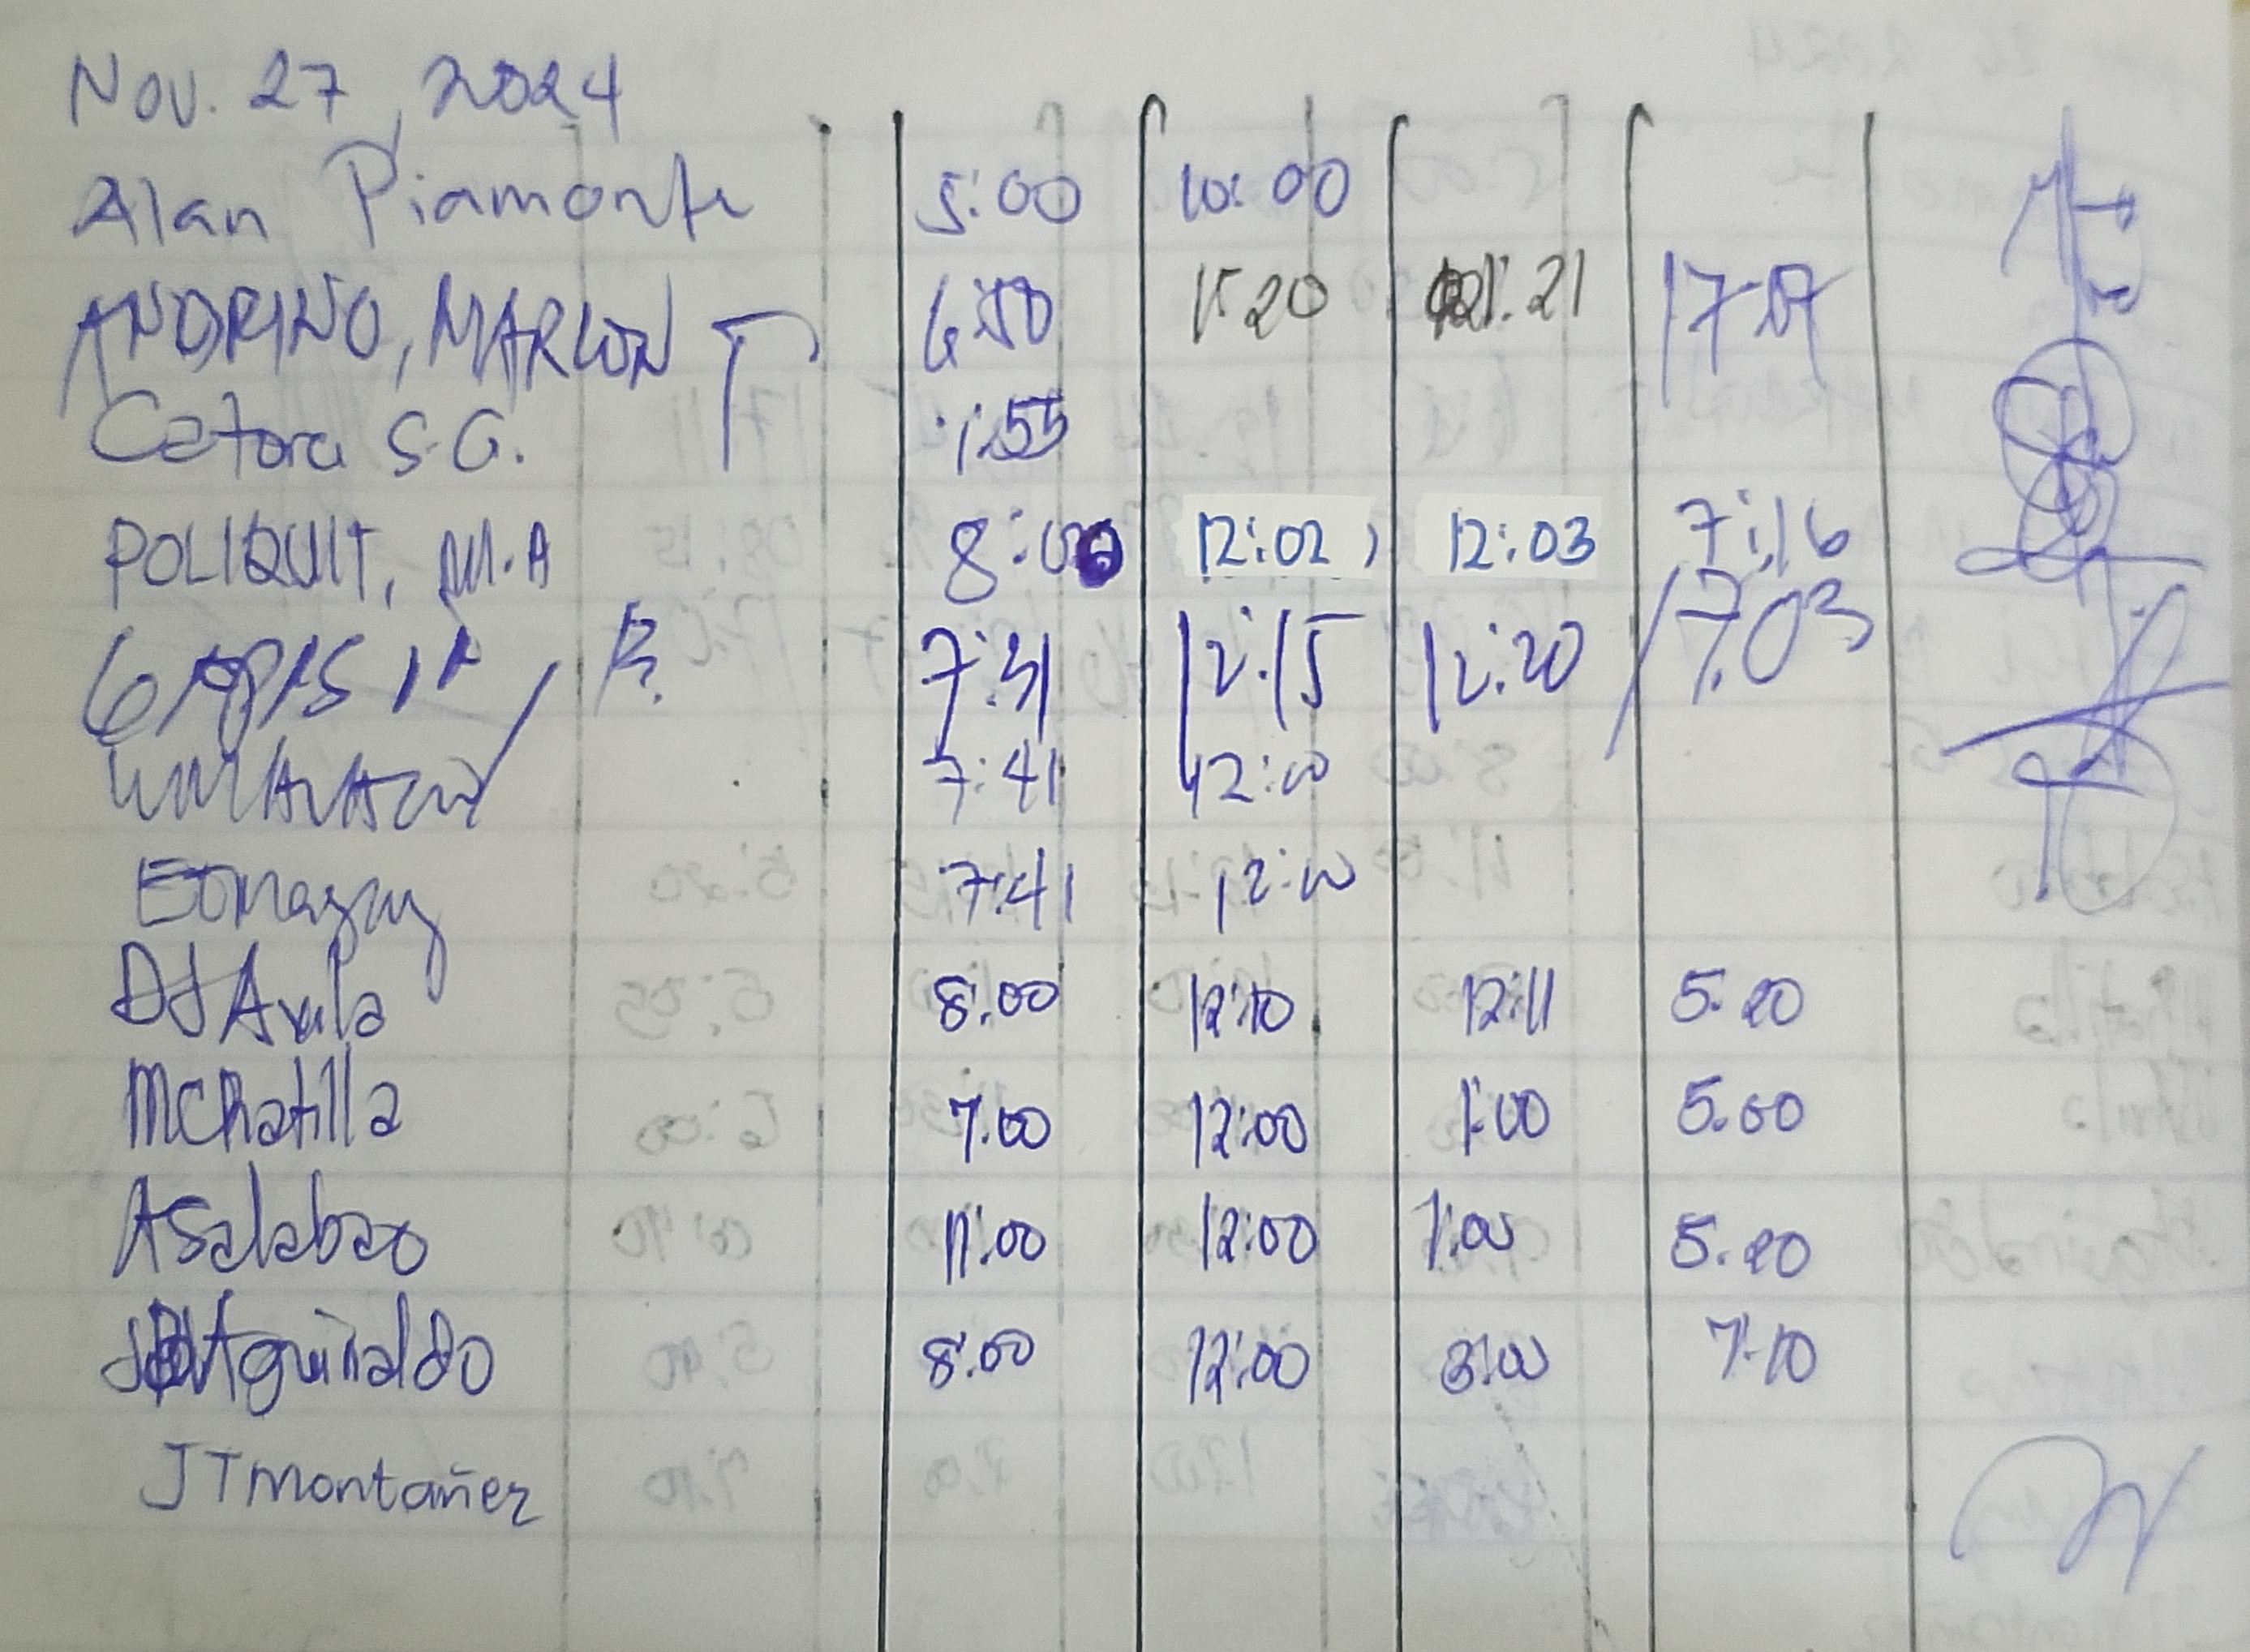 Nov. 27, 2024
Alan Piamonte 5:00 10:00
ANDRINO, MARLON T 6:50 1:20 1:21 17:07
Catora S.G. 7:55
POLIQUIT, M.A 8:00 12:02, 12:03 7:16
GAPAS, A B. 7:31 12:15 12:20 17:03
7:41 12:00
7:41 12:00
DJ Avila 8:00 12:10 12:11 5:20
MCRatilla 7:00 12:00 1:00 5:00
ASalabao 11:00 12:00 1:00 5:20
Aguinaldo 8:00 12:00 3:00 7:10
JTMontañez